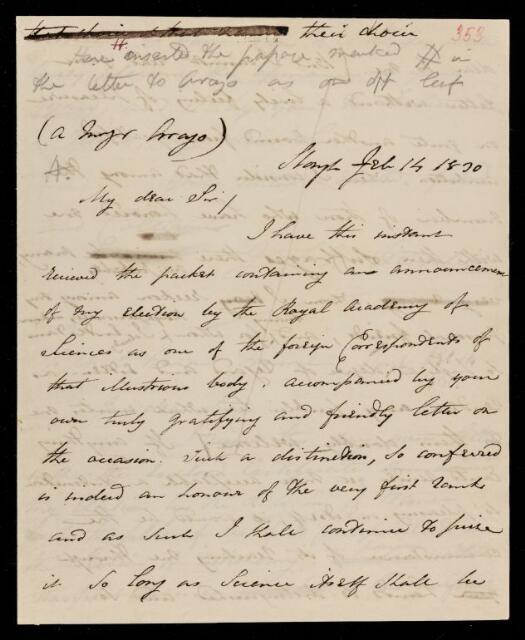 their choice
353
#
Here inserted the passage marked # in
the letter to Arago as on off leaf
(a Monsr Arago)
Slough Feb 14 1830
A.
My dear Sir/
I have this instant
recieved the packet containing an announcement
of my election by the Royal Academy of
Sciences as one of the foreign Correspondents of
that illustrious body, accompanied by your
own truly gratifying and friendly letter on
the occasion. Such a distinction, so conferred
is indeed an honour of the very first rank
and as such I shall continue to prize
it so long as Science itself shall be